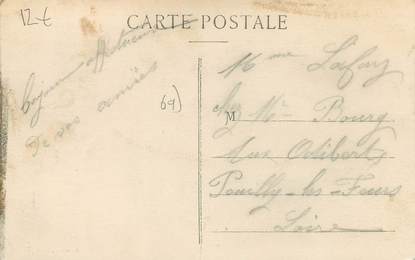 12€
CARTE POSTALE
bojour affectueux
De vos amies
69)
Mme Lafay
chez Mr Bourg
M
rue
Pouilly-les-Feurs
Loire